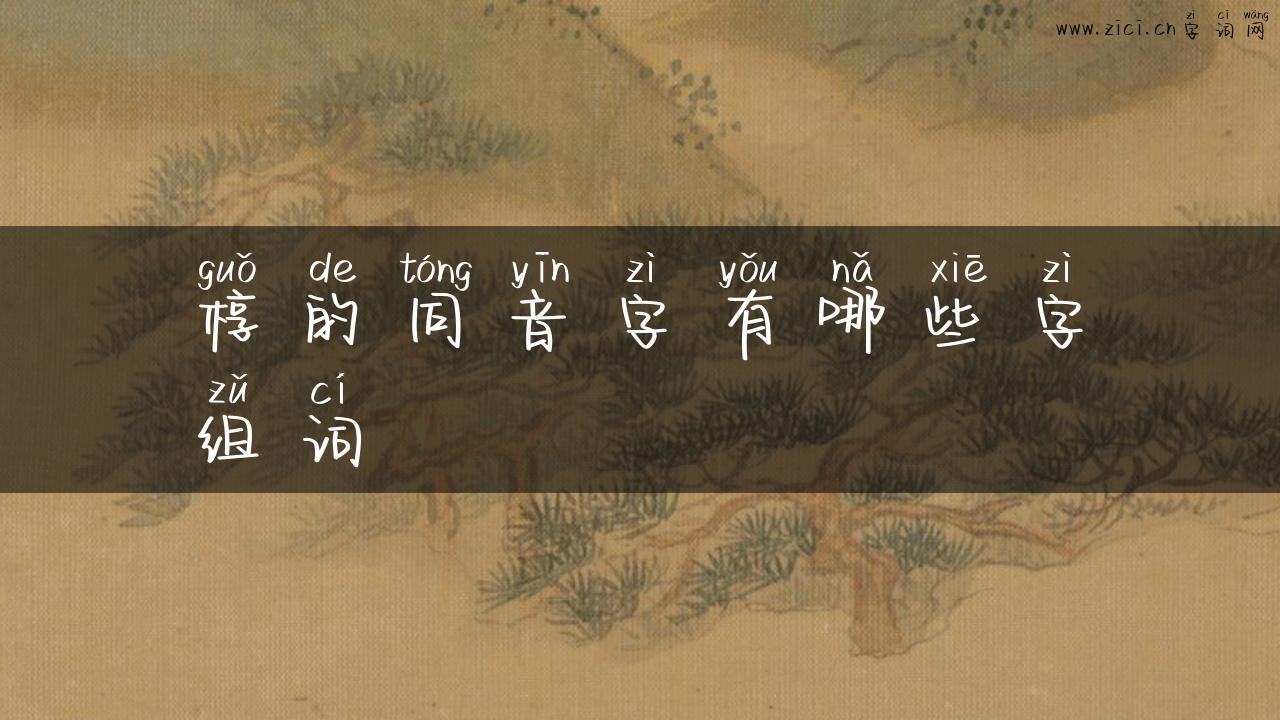 www.zici.cn
zì cí wǎng
字词网
guǒ de tóng yīn zì yǒu nǎ xiē zì
椁的同音字有哪些字
zǔ cí
组词